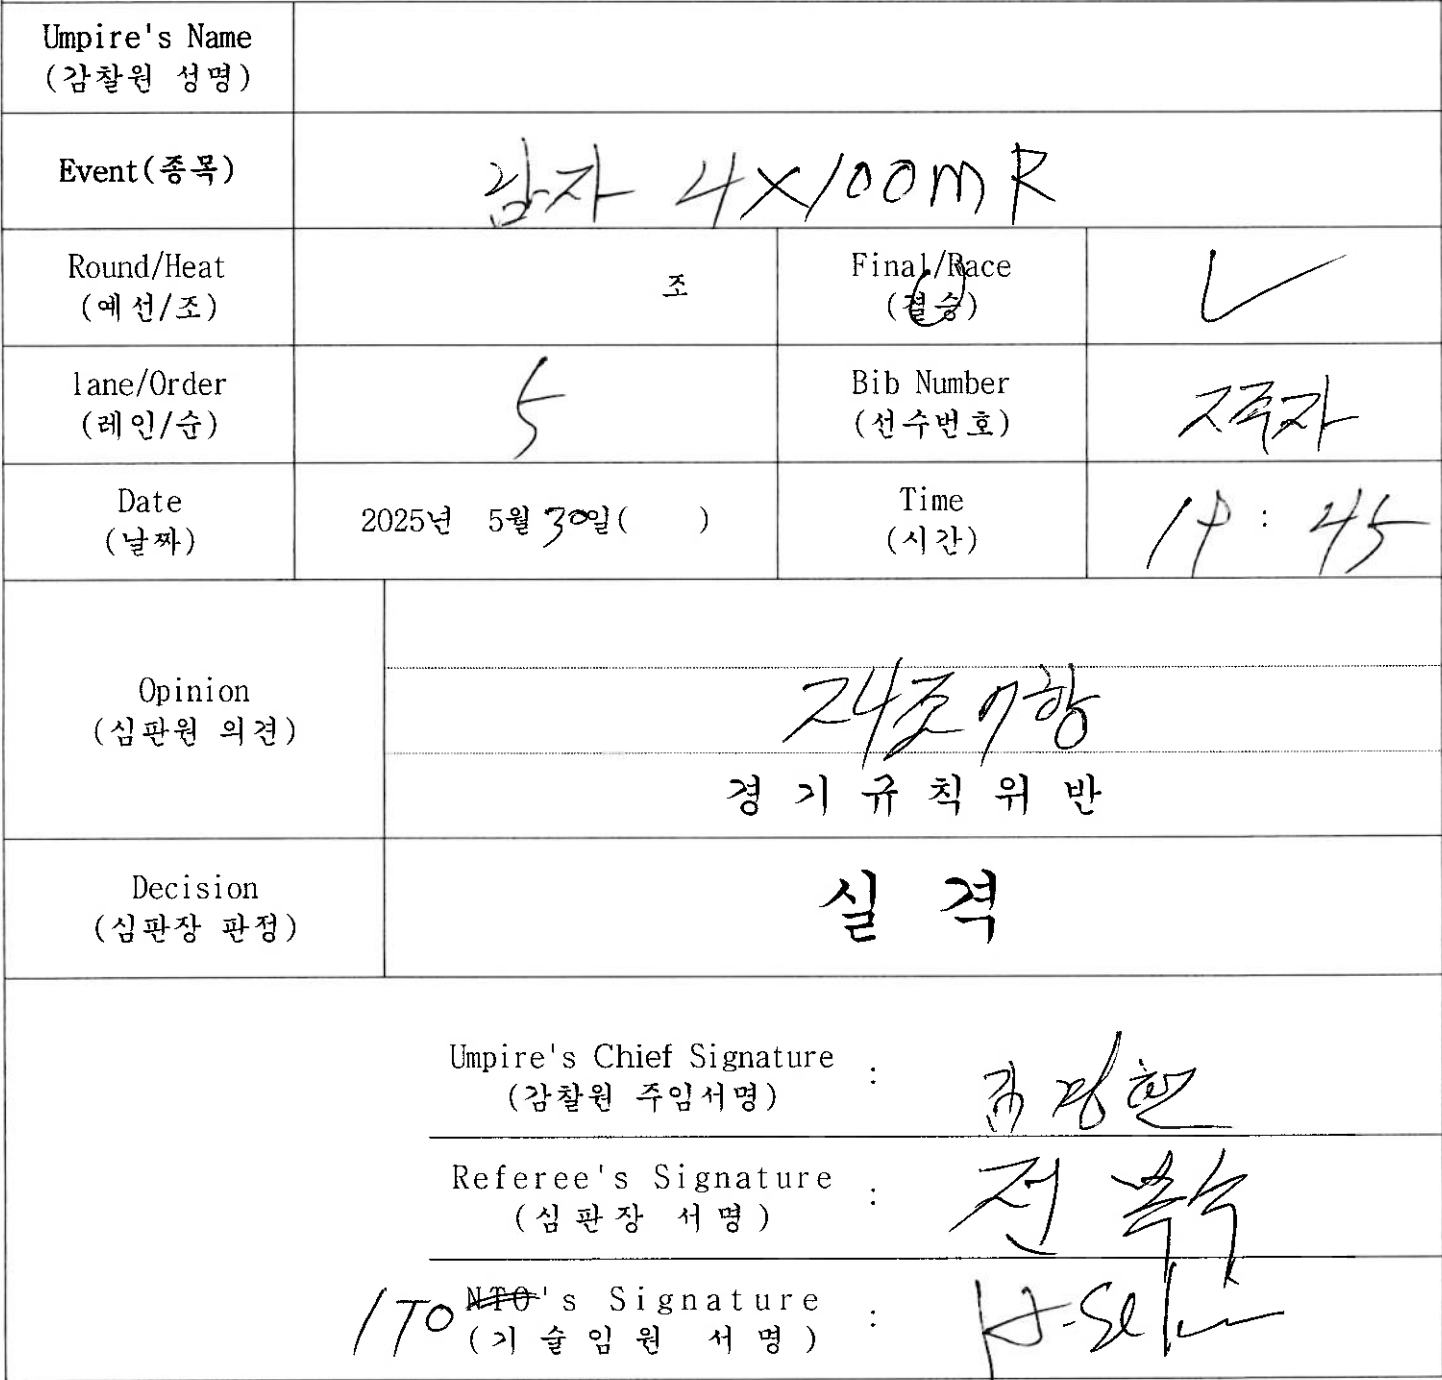 Umpire's Name
(감찰원 성명)
Event(종목)
남자 4×100m R
Round/Heat
(예선/조)
조
Final/Race
(결승)
✓
lane/Order
(레인/순)
5
Bib Number
(선수번호)
Date
(날짜)
2025년 5월 30일( )
Time
(시간)
: 45
Opinion
(심판원 의견)
경 기 규 칙 위 반
Decision
(심판장 판정)
실 격
Umpire's Chief Signature :
(감찰원 주임서명)
Referee's Signature :
(심판장 서명)
전
ITO NTO's Signature :
(기술임원 서명)